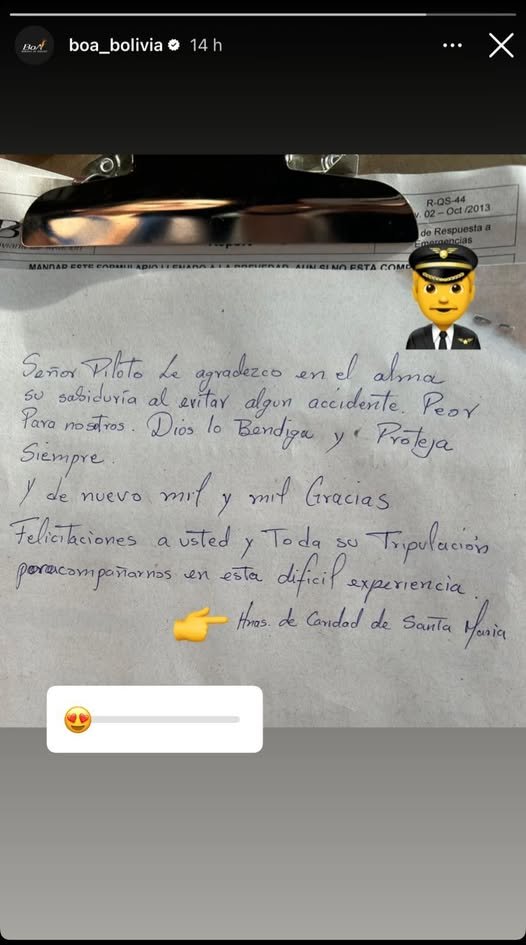 BoA
boa_bolivia 14 h
R-QS-44
v. 02 – Oct /2013
de Respuesta a
Emergencias
MANDAR ESTE FORMULARIO LLENADO A LA BREVEDAD, AUN SI NO ESTA
Señor Piloto Le agradezco en el alma
su sabiduría al evitar algun accidente. Peor
Para nosotros. Dios lo Bendiga y Proteja
Siempre.
Y de nuevo mil y mil Gracias
Felicitaciones a usted y Toda su Tripulación
por acompañarnos en esta dificil experiencia.
Hnas. de Caridad de Santa Maria